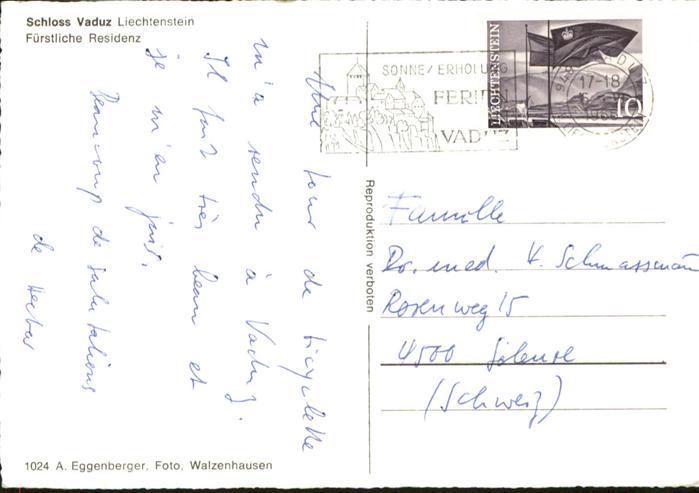 Schloss Vaduz Liechtenstein
Fürstliche Residenz
Une tour de bicyclette
m'a rendu à Vaduz.
Il fait très beau et
je m'en jouis.
Beaucoup de salutations
de
1024 A. Eggenberger, Foto, Walzenhausen
Reproduktion verboten
SONNE/ERHOLUNG
FERIEN
VADUZ
LIECHTENSTEIN
10
17-18
Famille
Dr. med. H. Schmassmann
Rosenweg 15
4500 Soleure
(Schweiz)